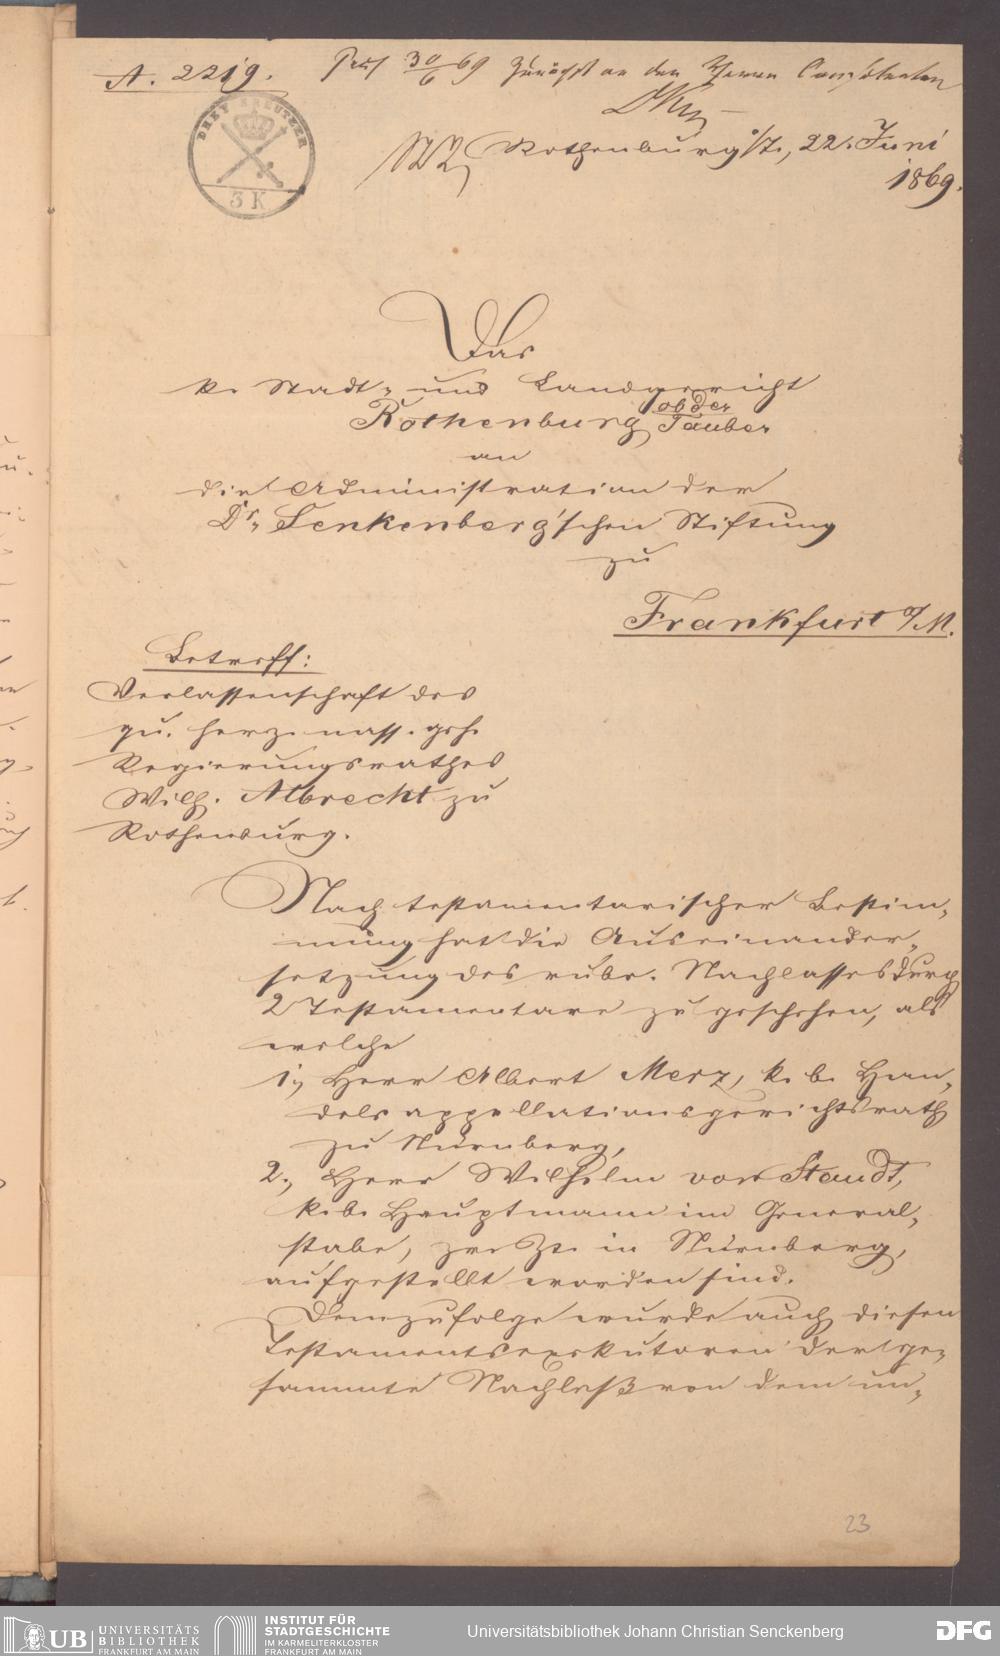 A. 2219.
30/6 69 Zunächst an den Herrn Consulenten
Rothenburg o/T., 22. Juni
1869.
DREY KREUTZER
3 K
Das
k. Stadt- und Landgericht
Rothenburg ob der Tauber
an
die Administration der
Dr. Senkenberg'schen Stiftung
zu
Frankfurt a/M.
Betreff:
Verlassenschaft des
qu. herz. nass. geh.
Regierungsrathes
Wilh. Albrecht zu
Rothenburg.
Nach testamentarischer Bestim-
mung hat die Auseinander-
setzung des rubr. Nachlasses durch
2 Testamentare zu geschehen, als
welche
1., Herr Albert Merz, k. b. Han-
delsappellationsgerichtsrath
zu Nürnberg,
2., Herr Wilhelm von Staudt,
k. b. Hauptmann im General-
stabe, zr. Zt. in Nürnberg,
aufgestellt worden sind.
Demzufolge wurde auch diesen
Testamentsexekutoren der ge-
sammte Nachlaß von dem un-
23
UB UNIVERSITÄTS
BIBLIOTHEK
FRANKFURT AM MAIN
INSTITUT FÜR
STADTGESCHICHTE
IM KARMELITERKLOSTER
FRANKFURT AM MAIN
Universitätsbibliothek Johann Christian Senckenberg
DFG